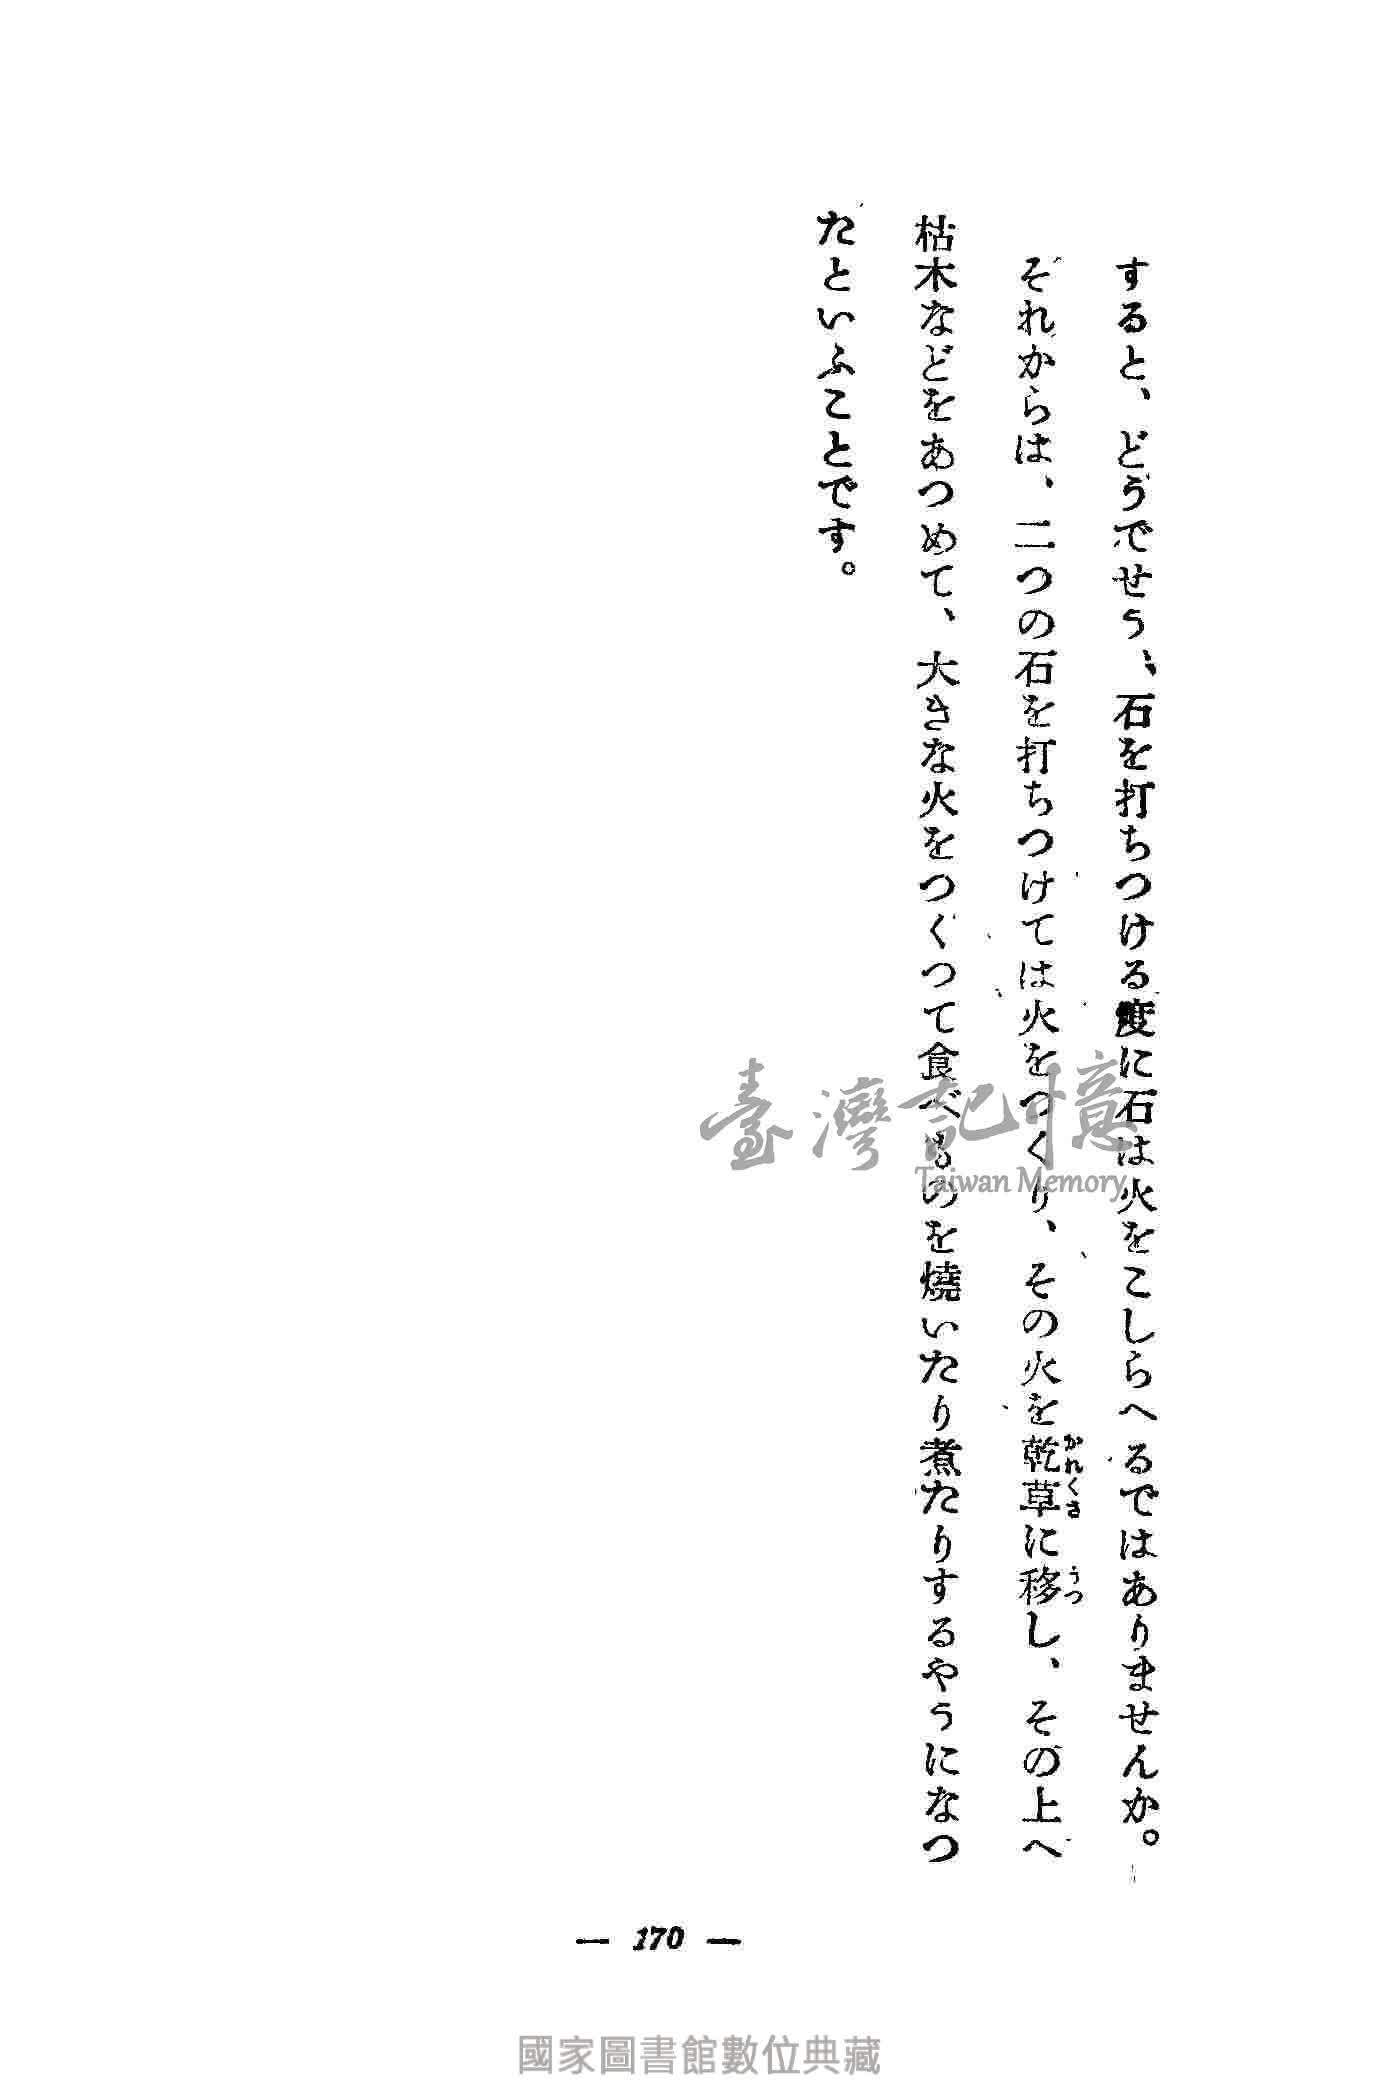 すると、どうでせう、石を打ちつける度に石は火をこしらへるではありませんか。
それからは、二つの石を打ちつけては火をつくり、その火を乾草に移し、その上へ
かれくさ
うつ
枯木などをあつめて、大きな火をつくつて食べものを燒いたり煮たりするやうになつ
たといふことです。
臺灣記憶
Taiwan Memory
— 170 —
國家圖書館數位典藏